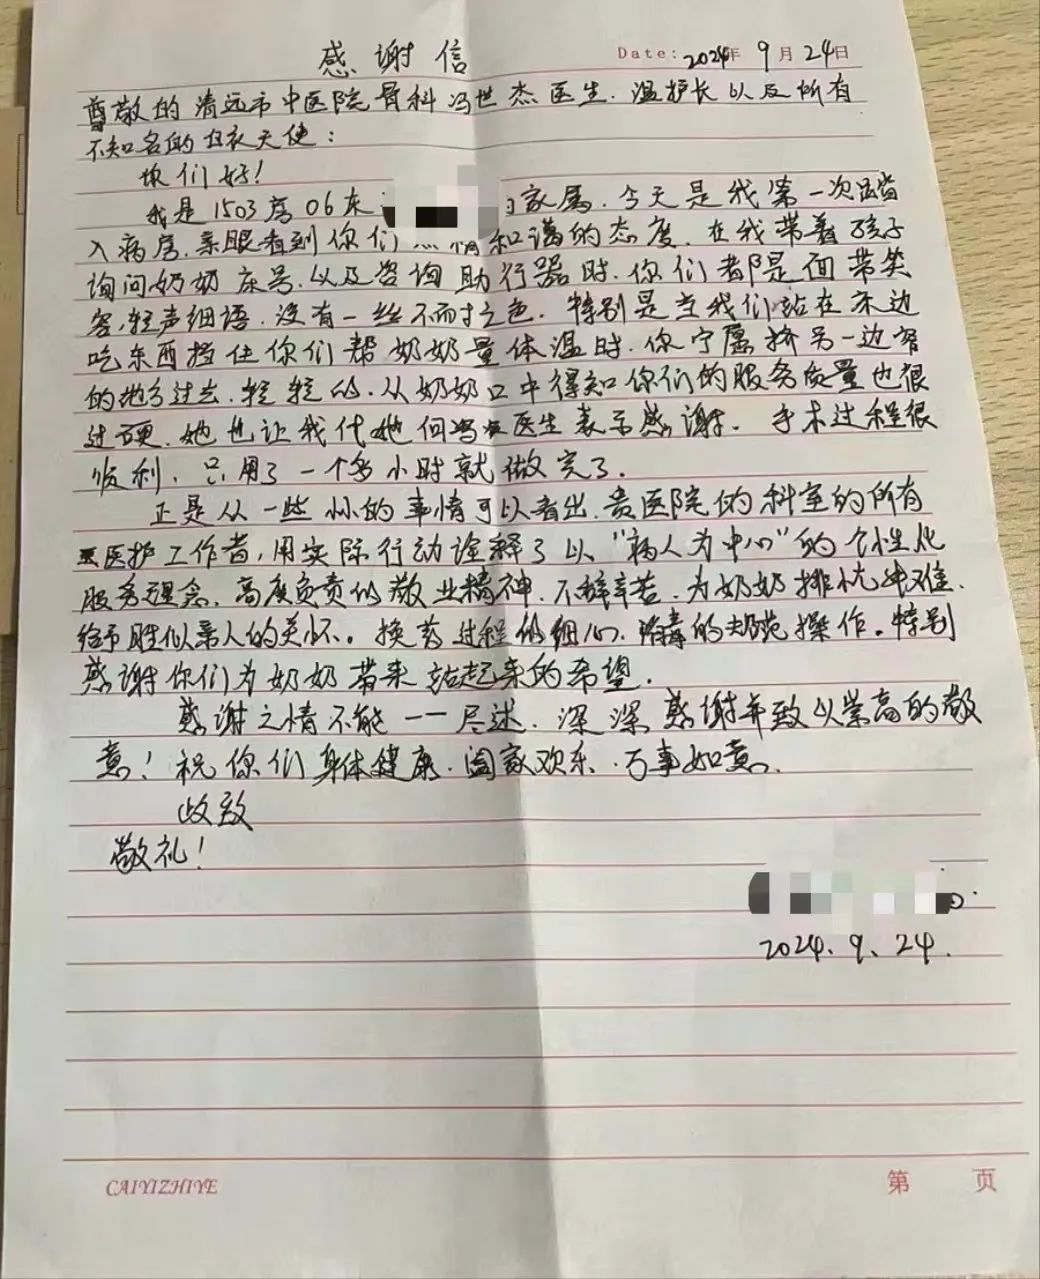 感谢信
Date: 2024年 9月 24日
尊敬的清远市中医院骨科冯世杰医生.温护长以及所有
不知名的白衣天使:
你们好!
我是1503房06床 的家属.今天是我第一次踏
入病房.亲眼看到你们热情和谐的态度.在我带着孩子
询问奶奶床号.以及咨询助行器时.你们都是面带笑
容,轻声细语.没有一丝不耐之色.特别是当我们站在床边
吃东西挡住你们帮奶奶量体温时.你宁愿挤另一边窄
的地方过去.轻轻的.从奶奶口中得知你们的服务质量也很
过硬.她也让我代她向冯医生表示感谢.手术过程很
顺利.只用了一个多小时就做完了.
正是从一些小的事情可以看出.贵医院的科室的所有
医护工作者,用实际行动诠释了以“病人为中心”的个性化
服务理念.高度负责的敬业精神.不辞辛苦.为奶奶排忧解难.
给予胜似亲人的关怀。换药过程的细心.消毒的规范操作。特别
感谢你们为奶奶带来站起来的希望.
感谢之情不能一一尽述.深深感谢并致以崇高的敬
意!祝你们身体健康.阖家欢乐.万事如意.
此致
敬礼!
2024.9.24.
CAIYIZHIYE
第 页